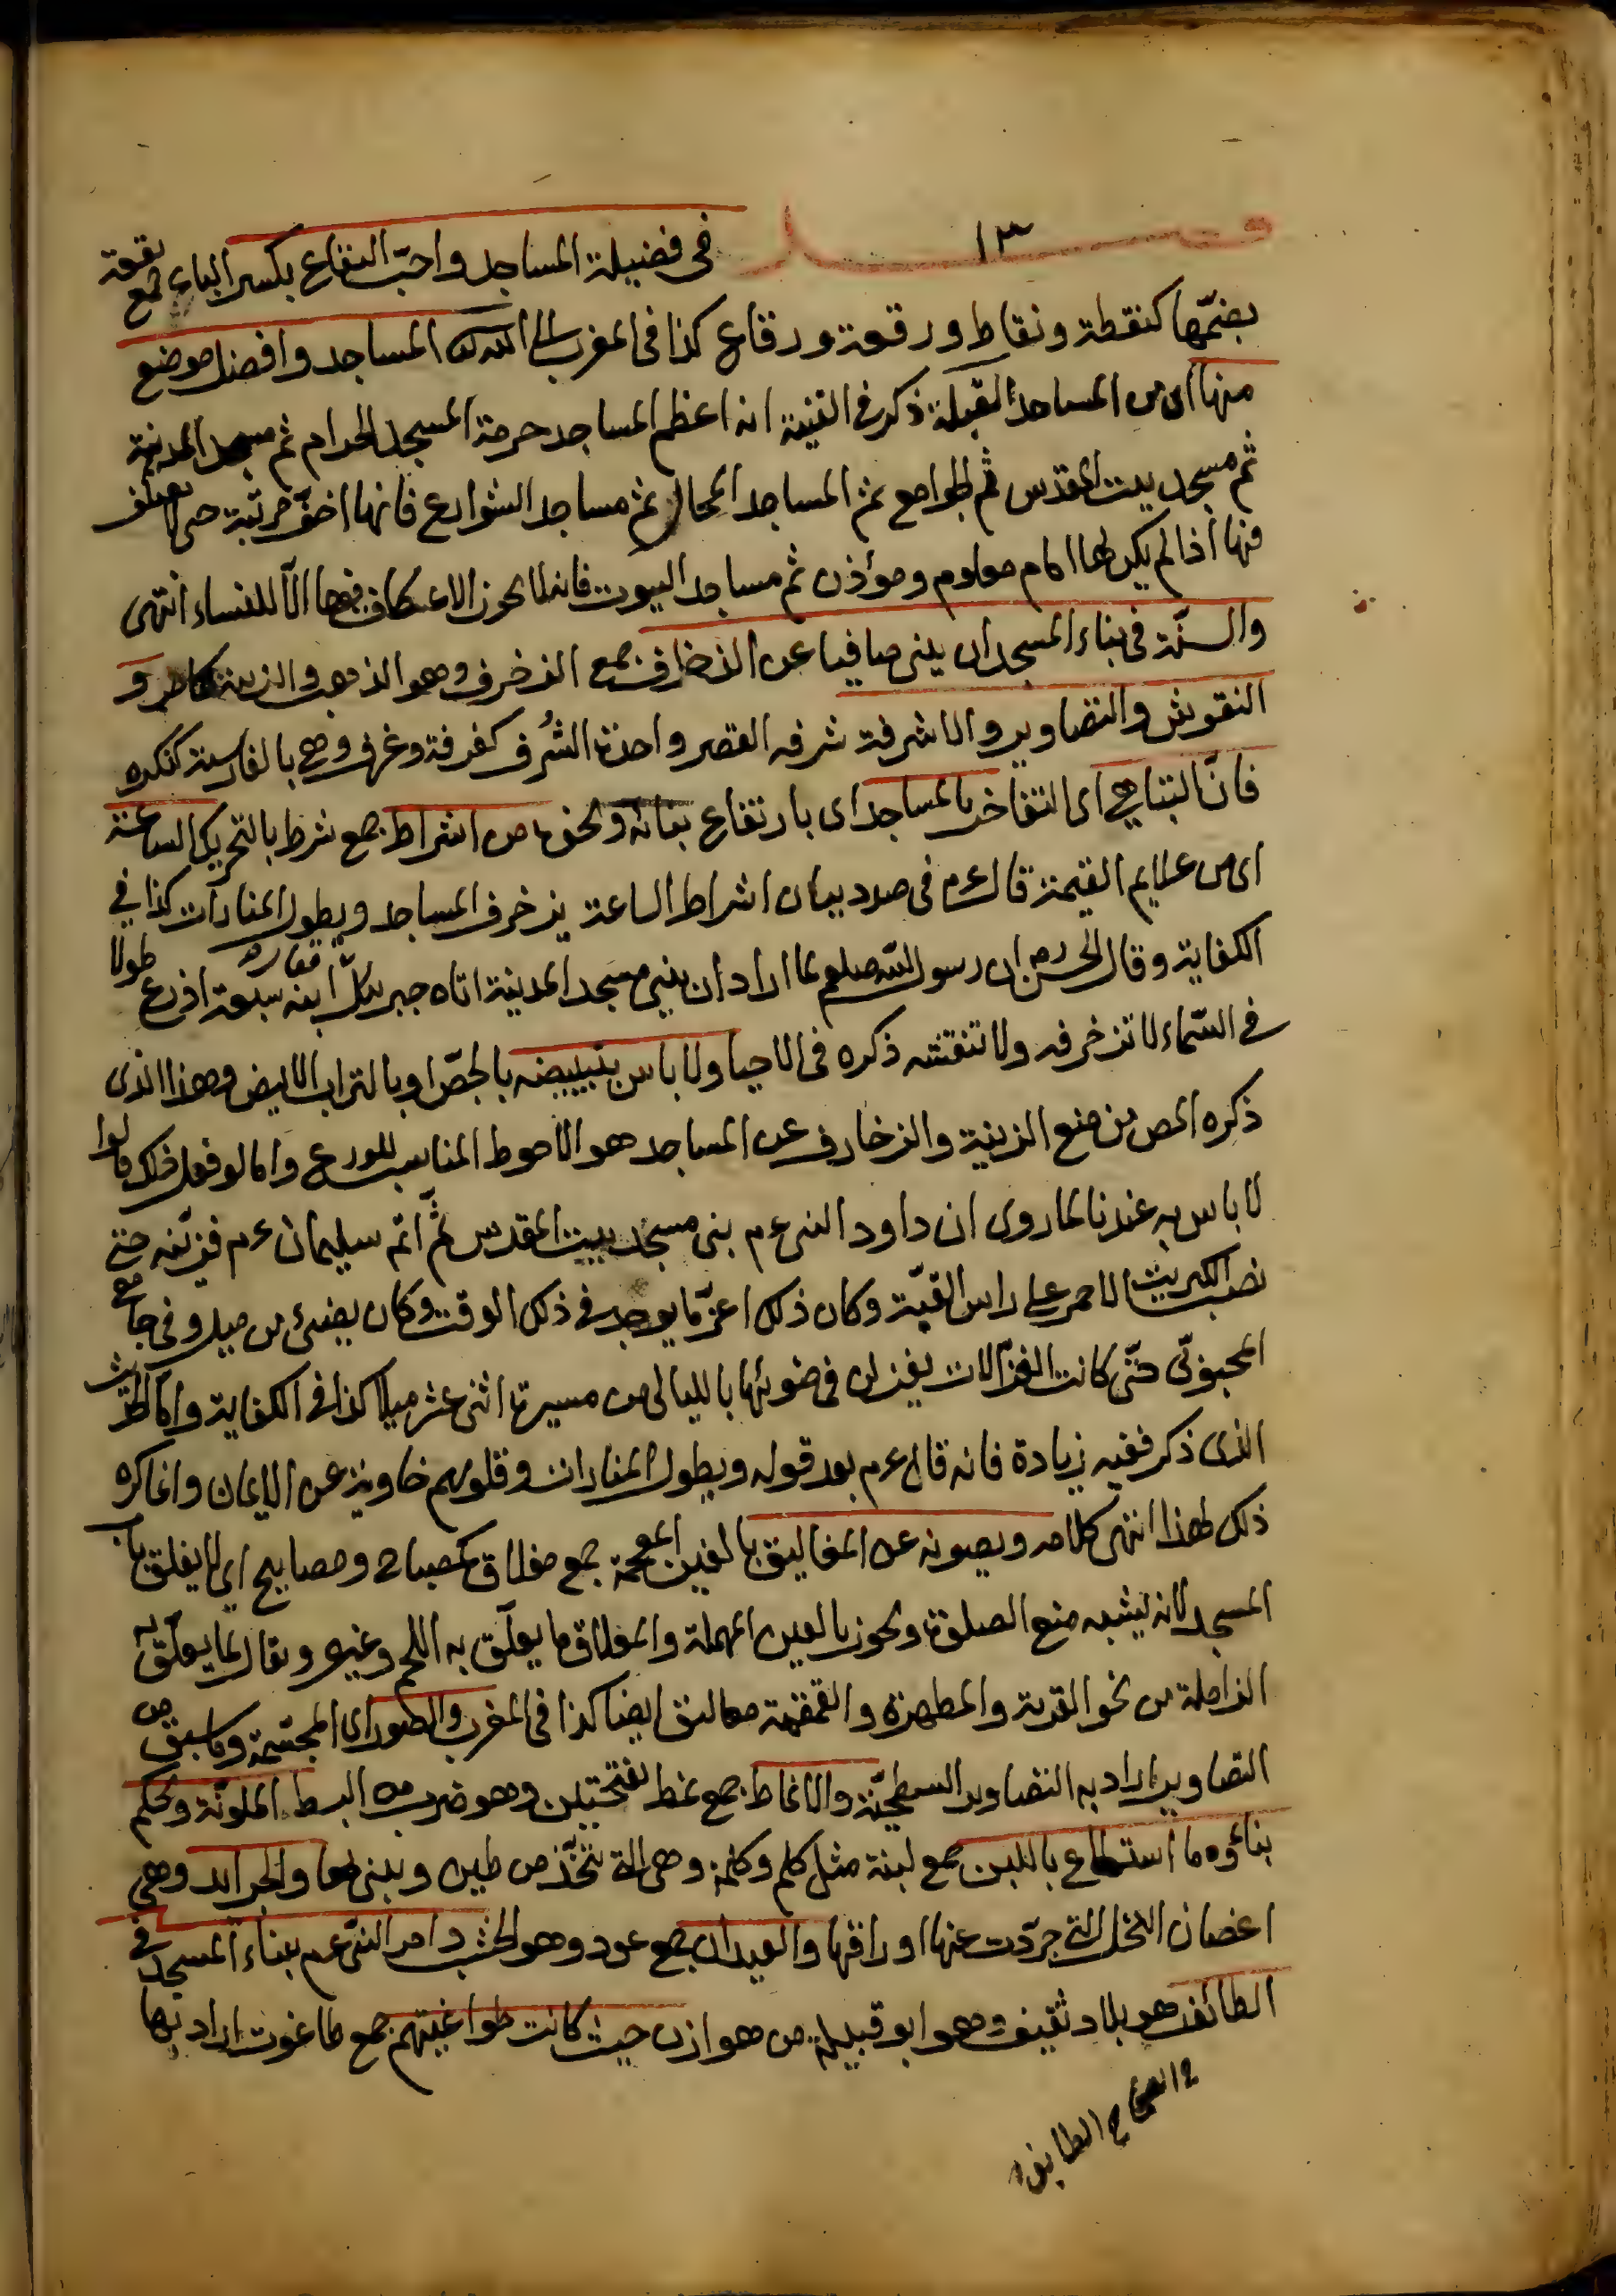 فصل ١٣ في فضيلة المساجد واحبّ البقاع بكسر الباء جمع بقعة
بضمّها كنقطة ونقاط ورقعة ورقاع كذا في المغرب الى الله المساجد وافضل موضع
منها اى من المساجد القبلة ذكر في القنية ان اعظم المساجد حرمة المسجد الحرام ثم مسجد المدينة
ثم مسجد بيت المقدس ثم الجوامع ثم المساجد المحال ثم مساجد الشوارع فانها اخفّ مرتبة حتى لا يعتكف
فيها اذا لم يكن لها امام معلوم ومؤذن ثم مساجد البيوت فانه لا يجوز الاعتكاف فيها الّا للنساء انتهى
والسنّة في بناء المسجد ان يبنى صافيا عن الزخارف جمع الزخرف وهو الذهب والزينة و
النقوش والتصاوير والاشرفة شرفه القصر واحدة الشُرف كغرفة وغرف وهي بالفارسية كنكره
فانّ التباهي اى التفاخر بالمساجد اى بارتفاع بنائه ونحوه من اشراط جمع شرط بالتحريك الساعة
اى من علايم القيمة قال ءم في صدد بيان اشراط الساعة يزخرف المساجد ويطول المنارات كذا في
الكفاية وقال الحسن رح ان رسول اللّه صلعم لما اراد ان يبني مسجد المدينة اتاه جبريل ابنه سبعة اذرع طولا
في السّماء لا تزخرفه ولا تنقشه ذكره في الاحيا ولا باس بتبييضه بالجصّ او بالتراب الابيض وهذا الذى
ذكره المص من منع الزينة والزخارف عن المساجد هو الاحوط المناسب للورع واما لو فعل ذلك قالوا
لا باس به عندنا لما روى ان داود النبى ءم بنى مسجد بيت المقدس ثمّ اتم سليمان ءم فزيّنه حتى
نصب الكبريت الاحمر على راس القبّة وكان ذلك اعزّ ما يوجد في ذلك الوقت وكان يضئ من ميل وفى جامع
المحبوبّى حتّى كانت الغزّالات يغزلن في ضوئها بالليالى من مسيرة اثنى عشر ميلا كذا في الكفاية واما الحديث
الذى ذكر ففيه زيادة فانه قال ءم بعد قوله ويطول المنارات وقلوبهم خاوية عن الايمان وانما كره
ذلك لهذا انتهى كلامه ويصونه عن المغاليق بالغين المعجمة جمع مغلاق كمصباح ومصابيح اى لا يغلق باب
المسجد لانه يشبه منع الصلوة ويجوز بالعين المهملة والمعلاق ما يعلّق به اللحم وغيره ويقال لما يعلّق به
الزاملة من نحو القربة والمطهرة والقمقمة معاليق ايضا كذا في المغرب والصور اى المجسّمة وما سبق من
التصاوير اراد به التصاوير السطحيّة والانماط جمع نمط بفتحتين وهو ضرب من البسط الملونة ويحكم
بناؤه ما استطاع باللبن جمع لبنة مثل كلم وكلمة وهى الة تتخّذ من طين ويبنى بها والجرائد وهى
اغصان النخل التي جرّدت عنها اوراقها والعيدان جمع عود وهو الخشب وامر النبّى ءم ببناء المسجد في
الطائف هو بلاد ثقيف وهو ابو قبيلة من هوازن حيث كانت طواغيتهم جمع طاغوت اراد بها